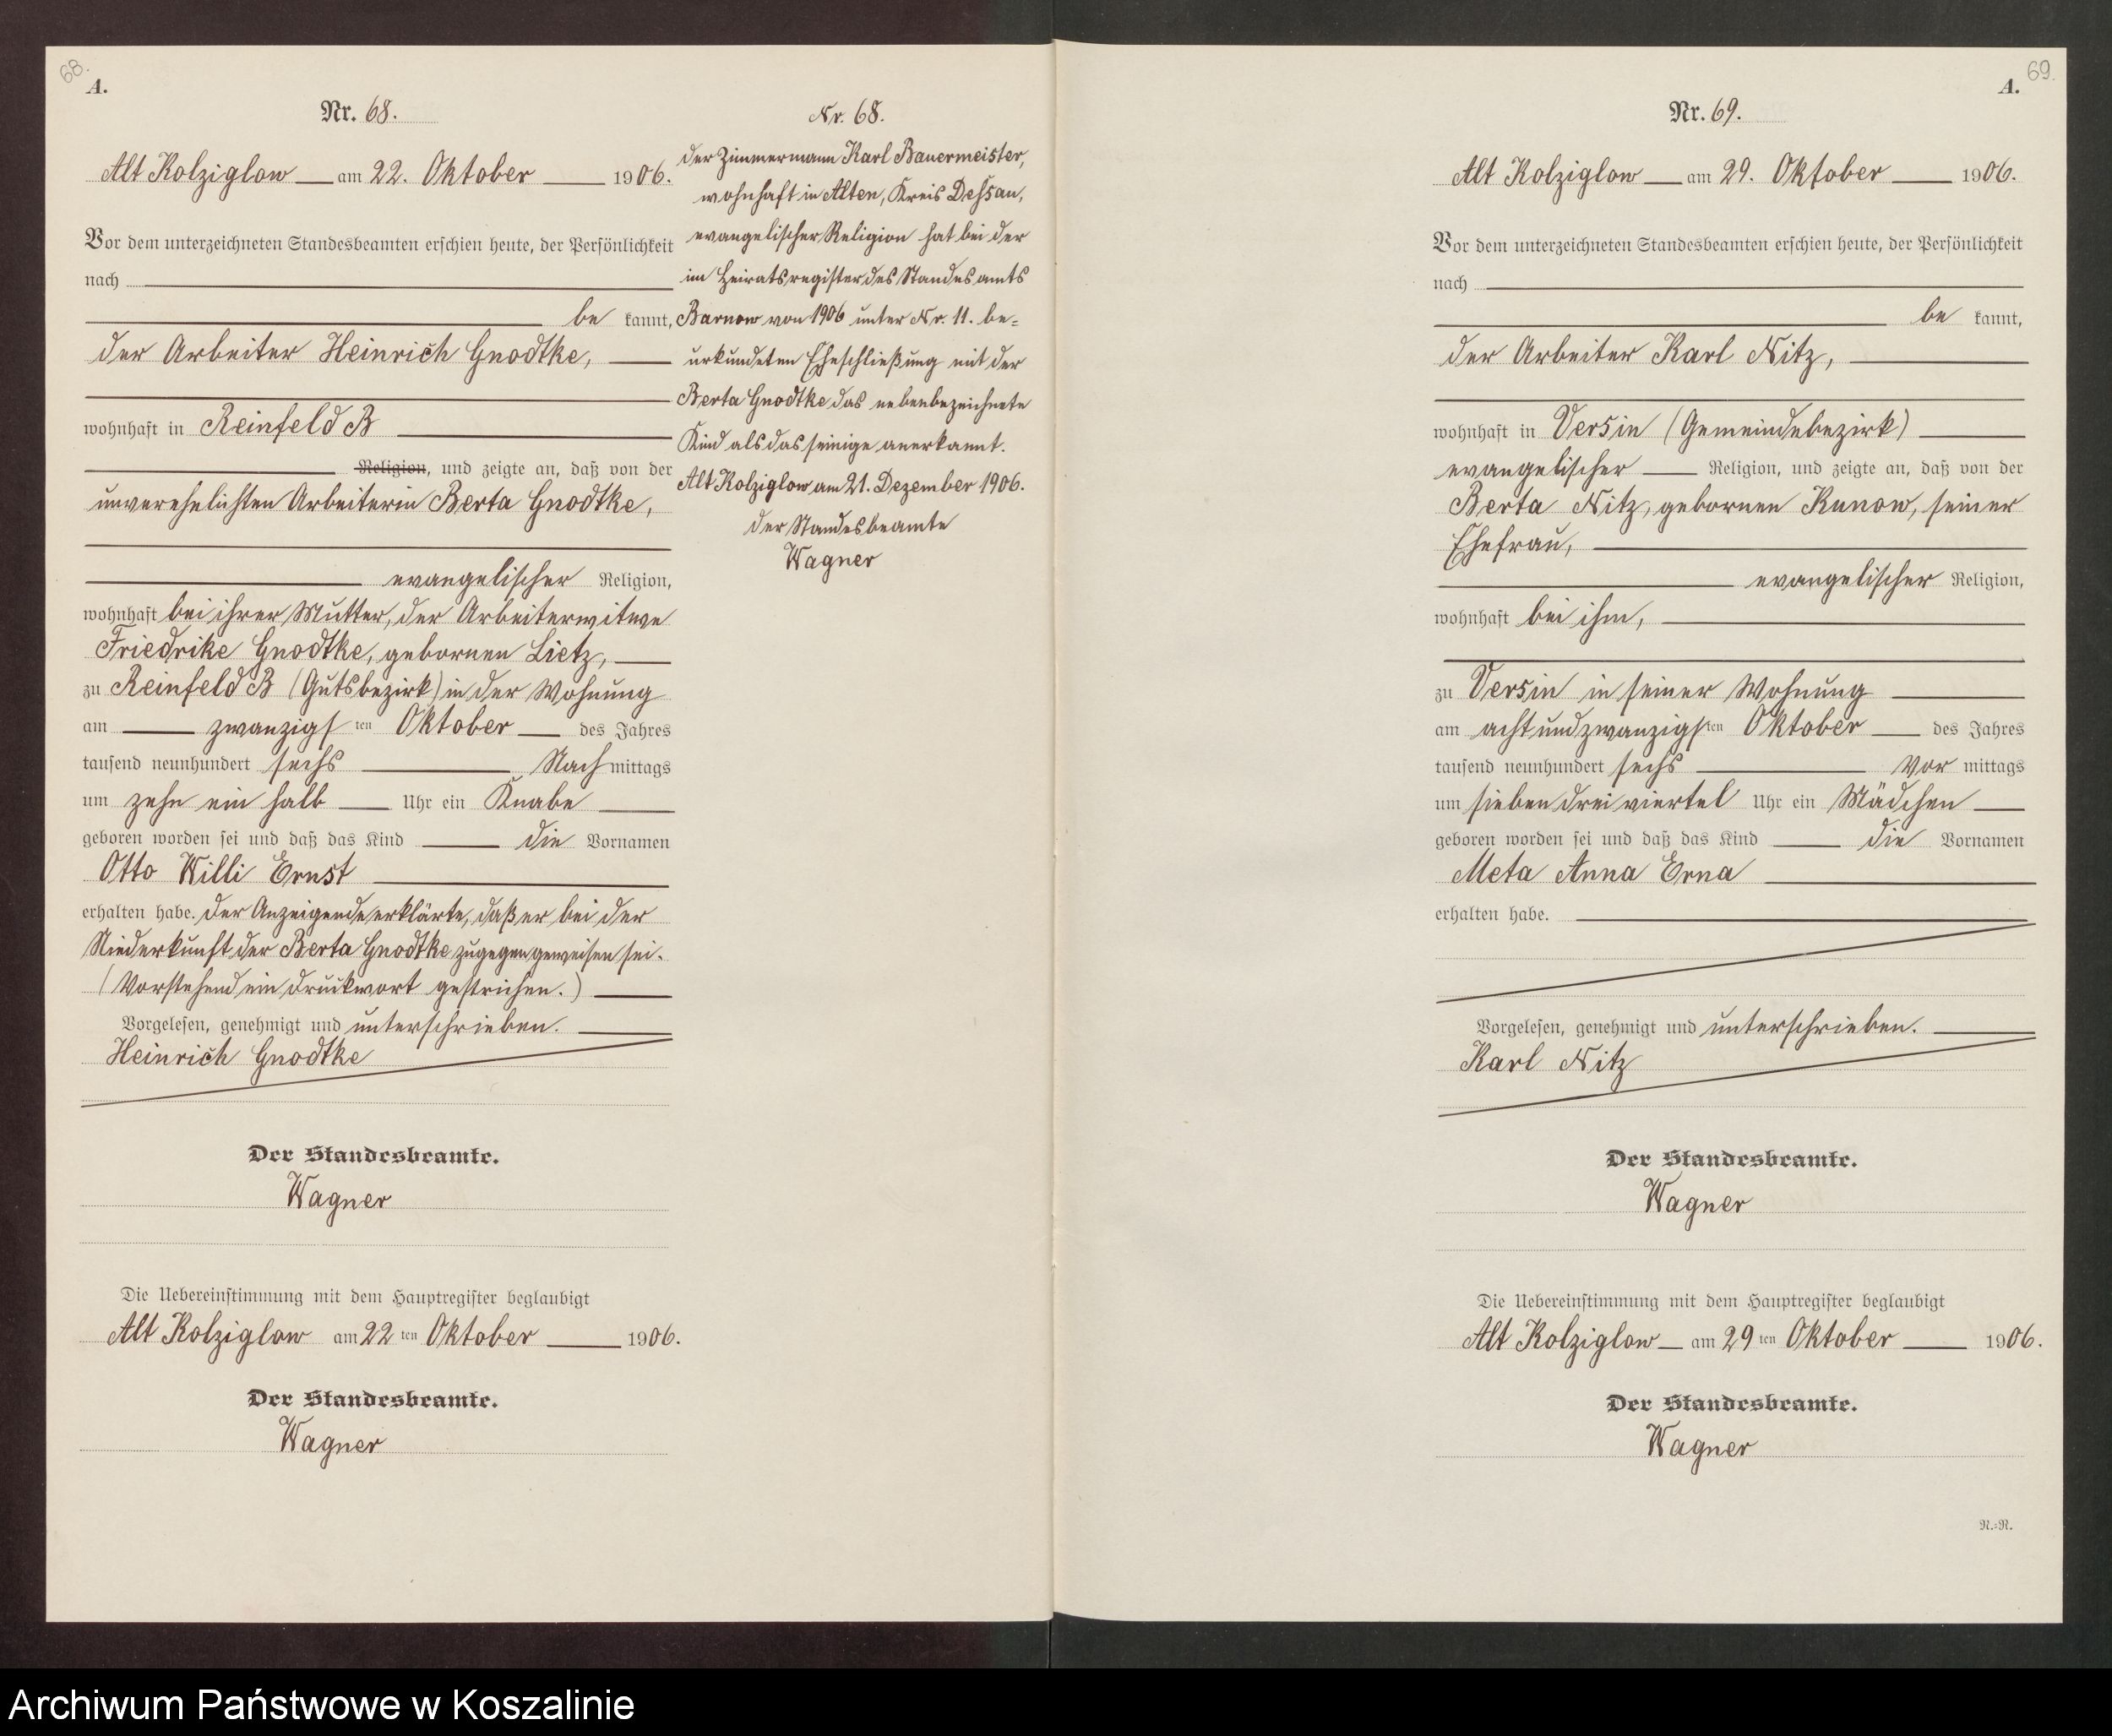 68.
A.
Nr. 68.
Alt Kolziglow am 22. Oktober 1906.
Vor dem unterzeichneten Standesbeamten erschien heute, der Persönlichkeit
nach
be kannt,
der Arbeiter Heinrich Gnodtke,
wohnhaft in Reinfeld B
Religion, und zeigte an, daß von der
unverehelichten Arbeiterin Berta Gnodtke,
evangelischer Religion,
wohnhaft bei ihrer Mutter, der Arbeiterwitwe
Friedrike Gnodtke, gebornen Lietz,
zu Reinfeld B (Gutsbezirk) in der Wohnung
am zwanzigsten Oktober des Jahres
tausend neunhundert sechs Nachmittags
um zehn ein halb Uhr ein Knabe
geboren worden sei und daß das Kind die Vornamen
Otto Willi Ernst
erhalten habe. Der Anzeigende erklärte, daß er bei der
Niederkunft der Berta Gnodtke zugegen geweisen sei.
(Vorstehend ein Druckwort gestrichen.)
Vorgelesen, genehmigt und unterschrieben.
Heinrich Gnodtke
Der Standesbeamte.
Wagner
Die Uebereinstimmung mit dem Hauptregister beglaubigt
Alt Kolziglow am 22ten Oktober 1906.
Der Standesbeamte.
Wagner
Nr. 68.
Der Zimmermann Karl Bauermeister,
wohnhaft in Alten, Kreis Dessau,
evangelischer Religion hat bei der
im Heiratsregister des Standesamts
Barnow von 1906 unter Nr. 11. be=
urkundeten Eheschließung mit der
Berta Gnodtke das nebenbezeichnete
Kind als das seinige anerkannt.
Alt Kolziglow, am 21. Dezember 1906.
Der Standesbeamte
Wagner
69.
A.
Nr. 69.
Alt Kolziglow am 29. Oktober 1906.
Vor dem unterzeichneten Standesbeamten erschien heute, der Persönlichkeit
nach
be kannt,
der Arbeiter Karl Nitz,
wohnhaft in Versin (Gemeindebezirk)
evangelischer Religion, und zeigte an, daß von der
Berta Nitz, gebornen Kunow, seiner
Ehefrau,
evangelischer Religion,
wohnhaft bei ihm,
zu Versin in seiner Wohnung
am achtundzwanzigsten Oktober des Jahres
tausend neunhundert sechs Vor mittags
um sieben drei viertel Uhr ein Mädchen
geboren worden sei und daß das Kind die Vornamen
Meta Anna Erna
erhalten habe.
Vorgelesen, genehmigt und unterschrieben.
Karl Nitz
Der Standesbeamte.
Wagner
Die Uebereinstimmung mit dem Hauptregister beglaubigt
Alt Kolziglow am 29ten Oktober 1906.
Der Standesbeamte.
Wagner
N.=N.
Archiwum Państwowe w Koszalinie